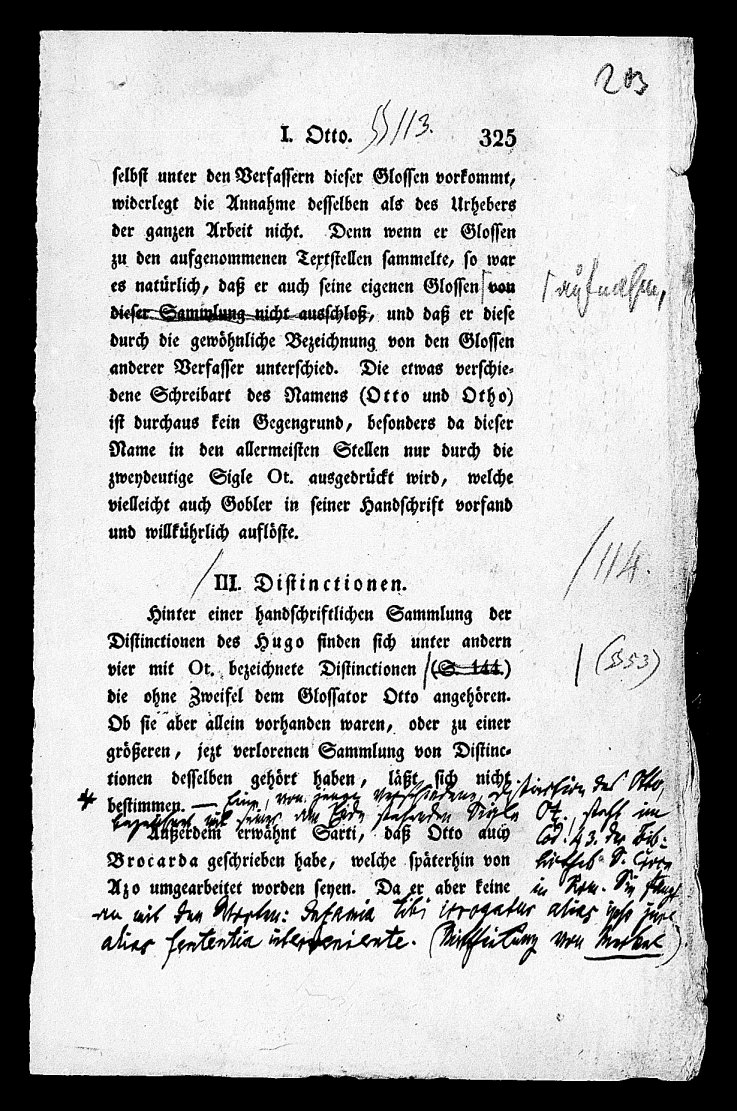 203
I. Otto. §§ 113. 325
selbst unter den Verfassern dieser Glossen vorkommt,
widerlegt die Annahme desselben als des Urhebers
der ganzen Arbeit nicht. Denn wenn er Glossen
zu den aufgenommenen Textstellen sammelte, so war
es natürlich, daß er auch seine eigenen Glossen von
aufnahm,
dieser Sammlung nicht ausschloß, und daß er diese
durch die gewöhnliche Bezeichnung von den Glossen
anderer Verfasser unterschied. Die etwas verschie-
dene Schreibart des Namens (Otto und Otho)
ist durchaus kein Gegengrund, besonders da dieser
Name in den allermeisten Stellen nur durch die
zweydeutige Sigle Ot. ausgedrückt wird, welche
vielleicht auch Gobler in seiner Handschrift vorfand
und willkührlich auflöste.
/ 114.
III. Distinctionen.
Hinter einer handschriftlichen Sammlung der
Distinctionen des Hugo finden sich unter andern
vier mit Ot. bezeichnete Distinctionen (S. 144.)
(§ 53)
die ohne Zweifel dem Glossator Otto angehören.
Ob sie aber allein vorhanden waren, oder zu einer
größeren, jezt verlorenen Sammlung von Distinc-
tionen desselben gehört haben, läßt sich nicht
bestimmen. — Eine, von jenen verschiedene, Distinction des Otto,
bezeichnet mit der am Ende stehenden Sigle Ot., steht im
Außerdem erwähnt Sarti, daß Otto auch
Cod. 43. der Bib-
Brocarda geschrieben habe, welche späterhin von
Azo umgearbeitet worden seyen. Da er aber keine
in Rom. Sie fängt
an mit den Worten: Infamia tibi irrogatur alias ipso jure
alias sententia interveniente. (Mittheilung von Merkel)